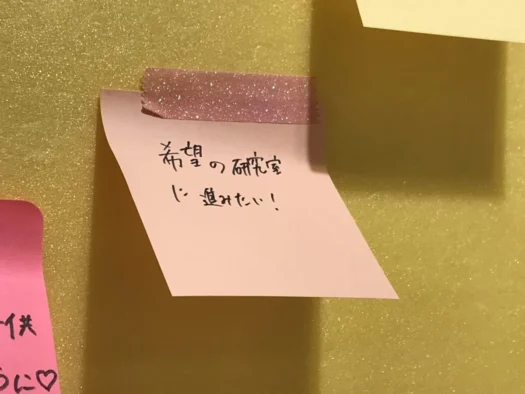 希望の研究室
に進みたい!
供
うに♡